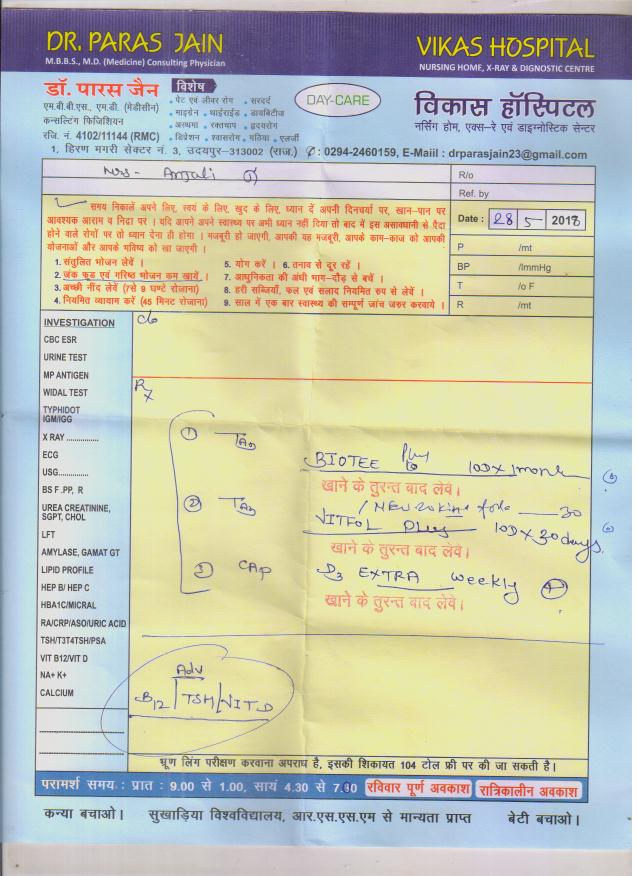 DR. PARAS JAIN
M.B.B.S., M.D. (Medicine) Consulting Physician
VIKAS HOSPITAL
NURSING HOME, X-RAY & DIGNOSTIC CENTRE
डॉ. पारस जैन
एम.बी.बी.एस., एम.डी. (मेडीसीन)
कन्सल्टिंग फिजिशियन
रजि. नं. 4102/11144 (RMC)
विशेष
• पेट एवं लीवर रोग • सरदर्द
• माइग्रेन • थाईराईड • डायबिटीज
• अस्थमा • रक्तचाप • हृदयरोग
• डिप्रेशन • श्वासरोग • गठिया • एलर्जी
DAY-CARE
विकास हॉस्पिटल
नर्सिंग होम, एक्स-रे एवं डाइग्नोस्टिक सेन्टर
1, हिरण मगरी सेक्टर नं. 3, उदयपुर-313002 (राज.) ✆: 0294-2460159, E-Maiil : drparasjain23@gmail.com
Mrs- Anjali
R/o
Ref. by
Date : 28 / 5 - 2018
P /mt
BP /ImmHg
T /o F
R /mt
समय निकालें अपने लिए, स्वयं के लिए, खुद के लिए, ध्यान दें अपनी दिनचर्या पर, खान-पान पर
आवश्यक आराम व निद्रा पर । यदि आपने अपने स्वास्थ्य पर अभी ध्यान नहीं दिया तो बाद में इस असावधानी से पैदा
होने वाले रोगों पर तो ध्यान देना ही होगा । मजबूरी हो जाएगी, आपकी यह मजबूरी, आपके काम-काज को आपकी
योजनाओं और आपके भविष्य को खा जाएगी ।
1. संतुलित भोजन लेवें ।
2. जंक फूड एवं गरिष्ठ भोजन कम खायें ।
3. अच्छी नींद लेवें (7से 9 घण्टे रोजाना)
4. नियमित व्यायाम करें (45 मिनट रोजाना)
5. योग करें । 6. तनाव से दूर रहें ।
7. आधुनिकता की अंधी भाग-दौड़ से बचें ।
8. हरी सब्जियाँ, फल एवं सलाद नियमित रुप से लेवें ।
9. साल में एक बार स्वास्थ्य की सम्पूर्ण जांच जरुर करवाये ।
INVESTIGATION
CBC ESR
URINE TEST
MP ANTIGEN
WIDAL TEST
TYPHIDOT
IGM/IGG
X RAY ...............
ECG
USG...................
BS F .PP, R
UREA CREATININE,
SGPT, CHOL
LFT
AMYLASE, GAMAT GT
LIPID PROFILE
HEP B/ HEP C
HBA1C/MICRAL
RA/CRP/ASO/URIC ACID
TSH/T3T4TSH/PSA
VIT B12/VIT D
NA+ K+
CALCIUM
C/o
Rx
① TAB BIOTEE 10D X 1 month
खाने के तुरन्त बाद लेवें।
② TAB / NEUROKIND forte —— 30
VITFOL Plus 10D X 30 days
खाने के तुरन्त बाद लेवें।
③ CAP D3 EXTRA weekly ④
खाने के तुरन्त बाद लेवें।
Adv
B12 | TSH | VIT D
भ्रूण लिंग परीक्षण करवाना अपराध है, इसकी शिकायत 104 टोल फ्री पर की जा सकती है।
परामर्श समय : प्रात : 9.00 से 1.00, सायं 4.30 से 7.00 रविवार पूर्ण अवकाश रात्रिकालीन अवकाश
कन्या बचाओ। सुखाड़िया विश्वविद्यालय, आर.एस.एस.एम से मान्यता प्राप्त बेटी बचाओ।